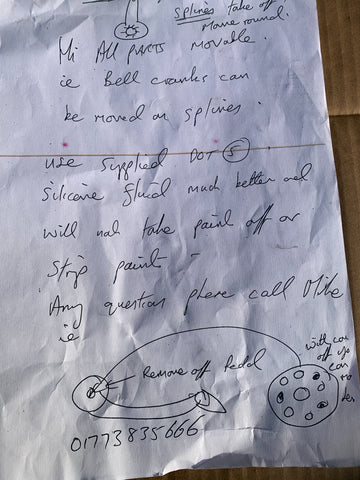 splines take off
move round.
Hi All parts movable.
ie Bell cranks can
be moved on splines.
use supplied DOT 5
silicone fluid much better and
will not take paint off or
strip paint -
Any question phone call Mike
ie
with
off
can
Remove off Pedal
01773835666